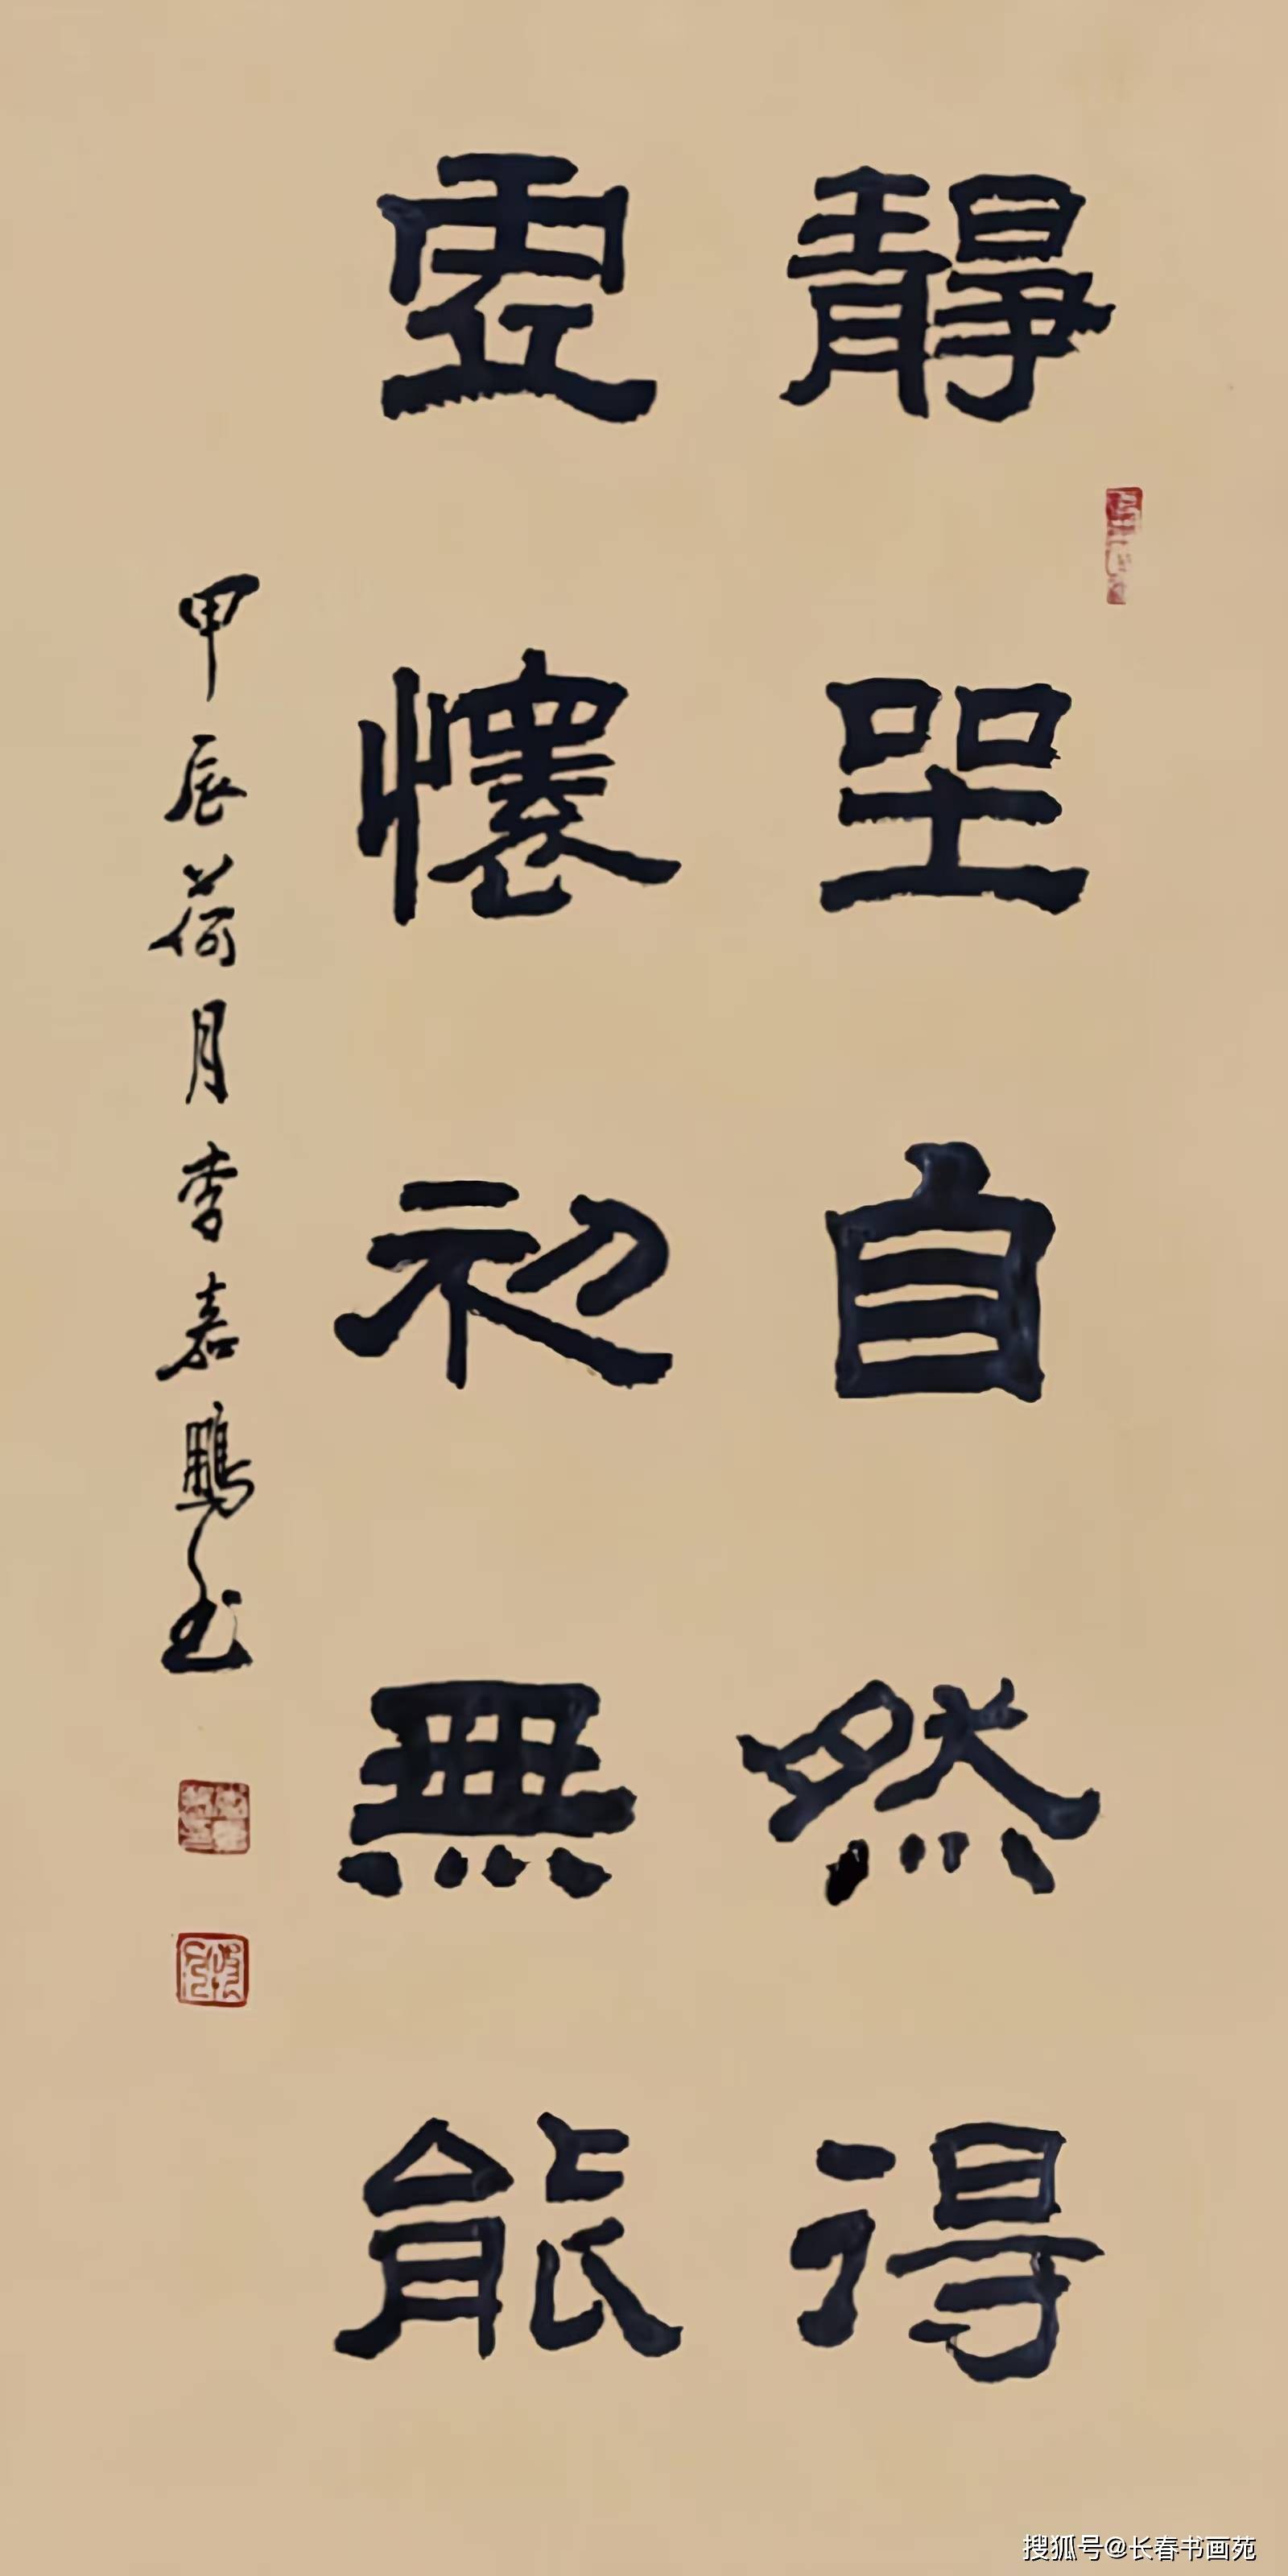 靜坐自然得
虛懷初無能
甲辰荷月李嘉鵬书
搜狐号@长春书画苑